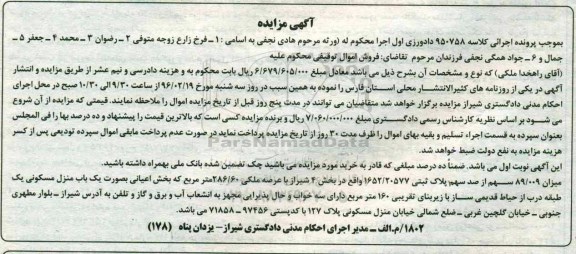 آگهی مزایده
بموجب پرونده اجرائی کلاسه ۹۵۰۷۵۸ دادورزی اول اجرا محکوم له (ورثه مرحوم هادی نجفی به اسامی : ۱ - فرخ زارع زوجه متوفی ۲ - رضوان ۳ - محمد ۴ - جعفر ۵ -
جمال و ۶ - جواد همگی نجفی فرزندان مرحوم تقاضای: فروش اموال توقیفی محکوم علیه
(آقای راهخدا ملکی) که نوع و مشخصات آن بشرح ذیل می باشد معادل مبلغ ۶/۶۷۹/۶۰۵/۰۰۰ ریال بابت محکوم به و هزینه دادرسی و نیم عشر از طریق مزایده و انتشار
آگهی در یکی از روزنامه های کثیرالانتشار محلی استان فارس را نموده به همین سبب در روز سه شنبه مورخ ۹۶/۰۲/۱۹ از ساعت ۹/۳۰ الی ۱۰/۳۰ صبح در محل اجرای
احکام مدنی دادگستری شیراز مزایده برگزار خواهد شد متقاضیان می توانند در مدت پنج روز قبل از تاریخ مزایده اموال را ملاحظه نمایند. قیمتی که مزایده از آن شروع
می شود بر اساس نظریه کارشناس رسمی دادگستری مبلغ ۷/۰۶۰/۰۰۰/۰۰۰ ریال و برنده مزایده کسی است که بالاترین قیمت را پیشنهاد و ده درصد بها را فی المجلس
بعنوان سپرده به قسمت اجراء تسلیم و بقیه بهای اموال را ظرف مدت ۳۰ روز از تاریخ مزایده پرداخت نماید در صورت عدم پرداخت مابقی اموال سپرده تودیعی پس از کسر
هزینه مزایده به نفع دولت ضبط خواهد شد.
این آگهی نوبت اول می باشد. ضمناً ده درصد مبلغی که قادر به خرید مورد مزایده می باشید چک تضمین شده بانک ملی بهمراه داشته باشید.
میزان ۸۹/۰۰۹ سهم از صد سهم پلاک ثبتی ۱۶۵۲/۲۰۵۷۷ واقع در بخش ۴ شیراز با عرصه ملکی ۲۸۶/۶۰ متر مربع که بخش اعیانی بصورت یک باب منزل مسکونی یک
طبقه درب از حیاط قدیمی ساز با زیربنای تقریبی ۱۶۰ متر مربع دارای سه خواب و حال پذیرایی مجهز به انشعاب آب و برق و گاز و تلفن به آدرس شیراز - بلوار مطهری
جنوبی - خیابان گلچین غربی - ضلع شمالی خیابان منزل مسکونی پلاک ۱۲۷ با کدپستی ۹۷۴۵۶ - ۷۱۸۵۸ می باشد.
۱۸۰۲/م.الف - مدیر اجرای احکام مدنی دادگستری شیراز - یزدان پناه (۱۷۸)
ParsNamadData